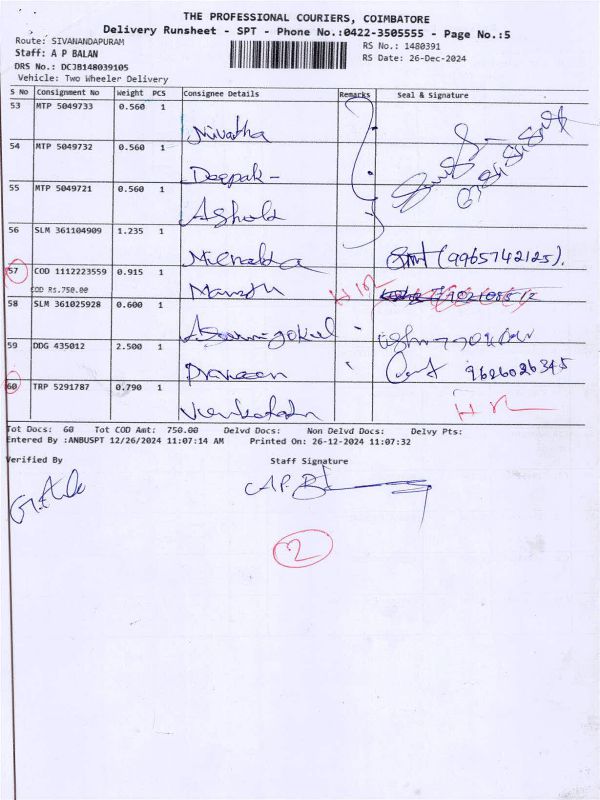 THE PROFESSIONAL COURIERS, COIMBATORE
Delivery Runsheet - SPT - Phone No.:0422-3505555 - Page No.:5
Route: SIVANANDAPURAM
Staff: A P BALAN
DRS No.: DCJB148039105
Vehicle: Two Wheeler Delivery
RS No.: 1480391
RS Date: 26-Dec-2024
S No Consignment No Weight PCS Consignee Details Remarks Seal & Signature
53 MTP 5049733 0.560 1
Nivatha
54 MTP 5049732 0.560 1
Deepak -
55 MTP 5049721 0.560 1
Ashok
56 SLM 361104909 1.235 1
(9965742125).
57 COD 1112223559 0.915 1
COD Rs.750.00
58 SLM 361025928 0.600 1
59 DDG 435012 2.500 1
Praveen 9626026345
60 TRP 5291787 0.790 1
Tot Docs: 60 Tot COD Amt: 750.00 Delvd Docs: Non Delvd Docs: Delvy Pts:
Entered By :ANBUSPT 12/26/2024 11:07:14 AM Printed On: 26-12-2024 11:07:32
Verified By Staff Signature
2